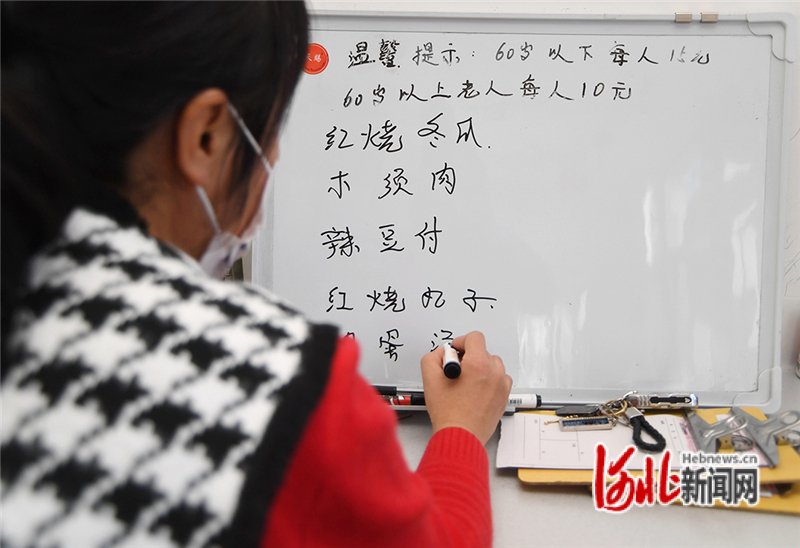 温馨提示:60岁以下每人15元
60岁以上老人每人10元
红烧冬瓜.
木须肉
辣豆付
红烧丸子.
蛋汤
Hebnews.cn
河北新闻网